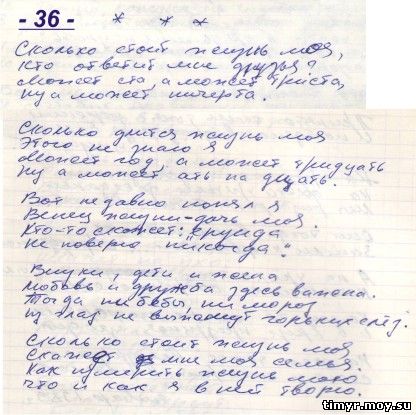 - 36 -
* * *
Сколько стоит жизнь моя,
Кто ответит мне друзья?
Может ста, а может триста,
ну а может ничерта.
Сколько длится жизнь моя
Этого не знаю я
Может год, а может тридцать
ну а может
Вот недавно понял я
Венец жизни - дочь моя
Кто-то скажет: ерунда
не поверю "никогда".
Внуки, дети и жена
Любовь и дружба здесь важна.
Тогда ни беды, ни мороз
из глаз не выжмут горьких слёз.
Сколько стоит жизнь моя
Скажет мне моя семья.
Как измерить жизнь мою
что и как я в ней творю.
timyr.moy.su